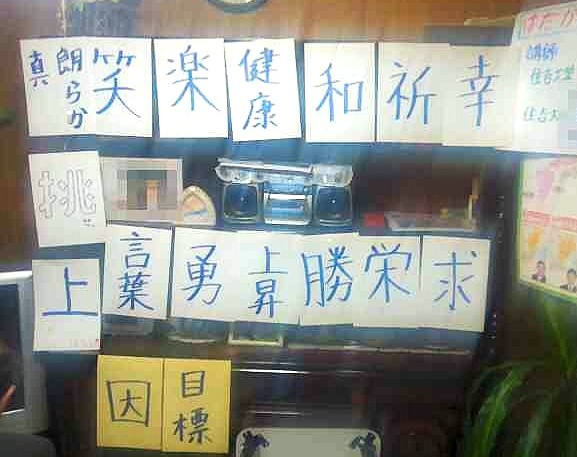 真 朗らか 笑 楽 健康 和 祈 幸
挑
上 言葉 勇 上昇 勝 栄 求
因 目標
講師
住吉大